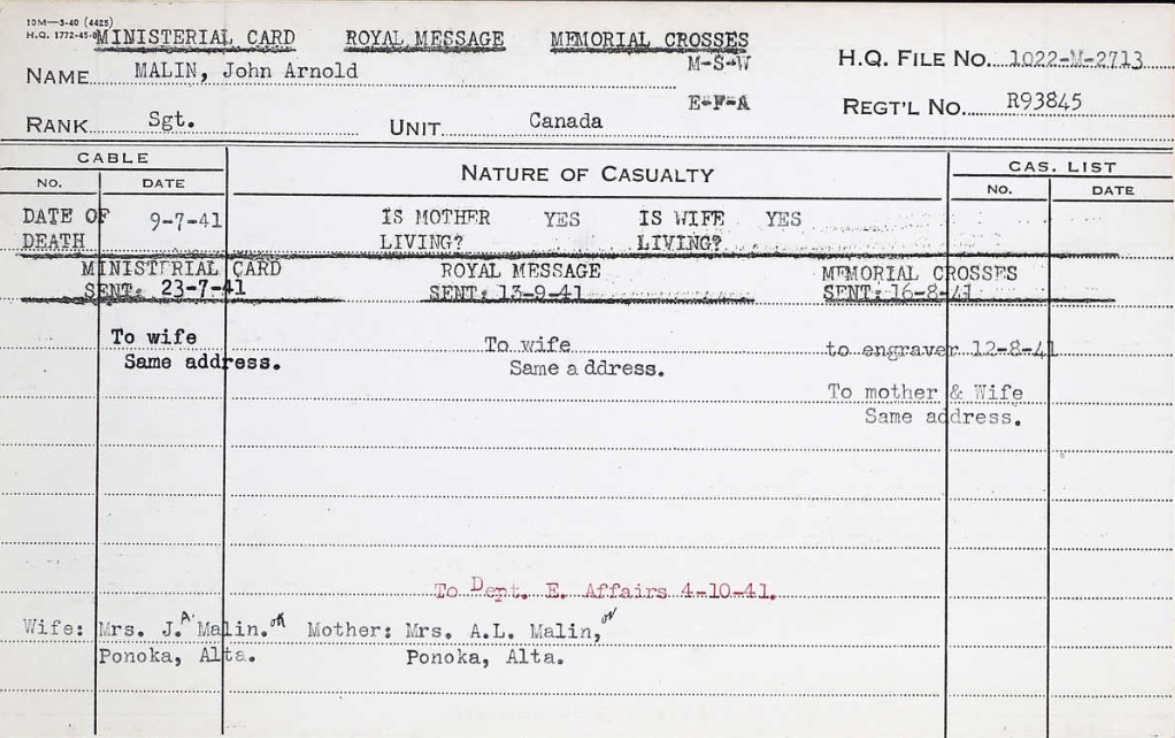 10M—3-40 (4425)
H.Q. 1772-45-8
MINISTERIAL CARD ROYAL MESSAGE MEMORIAL CROSSES
NAME MALIN, John Arnold M-S-W H.Q. FILE NO. 1022-M-2713
E-F-A REGT'L NO. R93845
RANK Sgt. UNIT Canada
CABLE NATURE OF CASUALTY CAS. LIST
NO. DATE NO. DATE
DATE OF 9-7-41 IS MOTHER YES IS WIFE YES
DEATH LIVING? LIVING?
MINISTERIAL CARD ROYAL MESSAGE MEMORIAL CROSSES
SENT: 23-7-41 SENT: 13-9-41 SENT: 16-8-41
To wife To wife to engraver 12-8-41
Same address. Same a ddress.
To mother & Wife
Same address.
To Dept. E. Affairs 4-10-41.
Wife: Mrs. J.A. Malin. Mother: Mrs. A.L. Malin,
Ponoka, Alta. Ponoka, Alta.